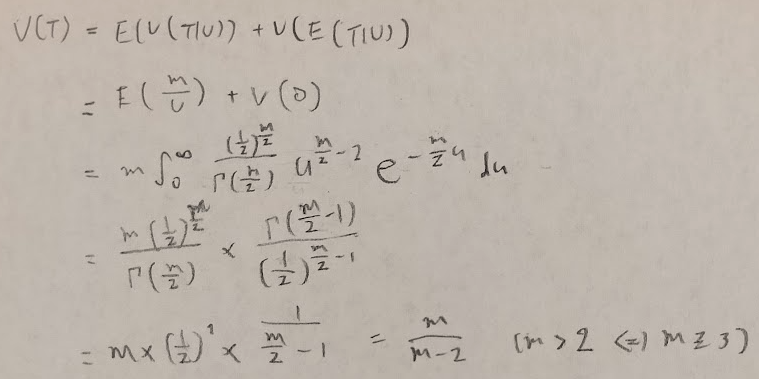 V(T) = E(V(T|U)) + V(E(T|U))
= E(m/U) + V(0)
= m ∫₀^∞ (1/2)^(m/2) / Γ(m/2) u^(m/2 - 2) e^(-m/2 u) du
= m(1/2)^(m/2) / Γ(m/2) × Γ(m/2 - 1) / (1/2)^(m/2 - 1)
= m × (1/2)^1 × 1 / (m/2 - 1) = m / (m-2) (m > 2 <=> m ≥ 3)